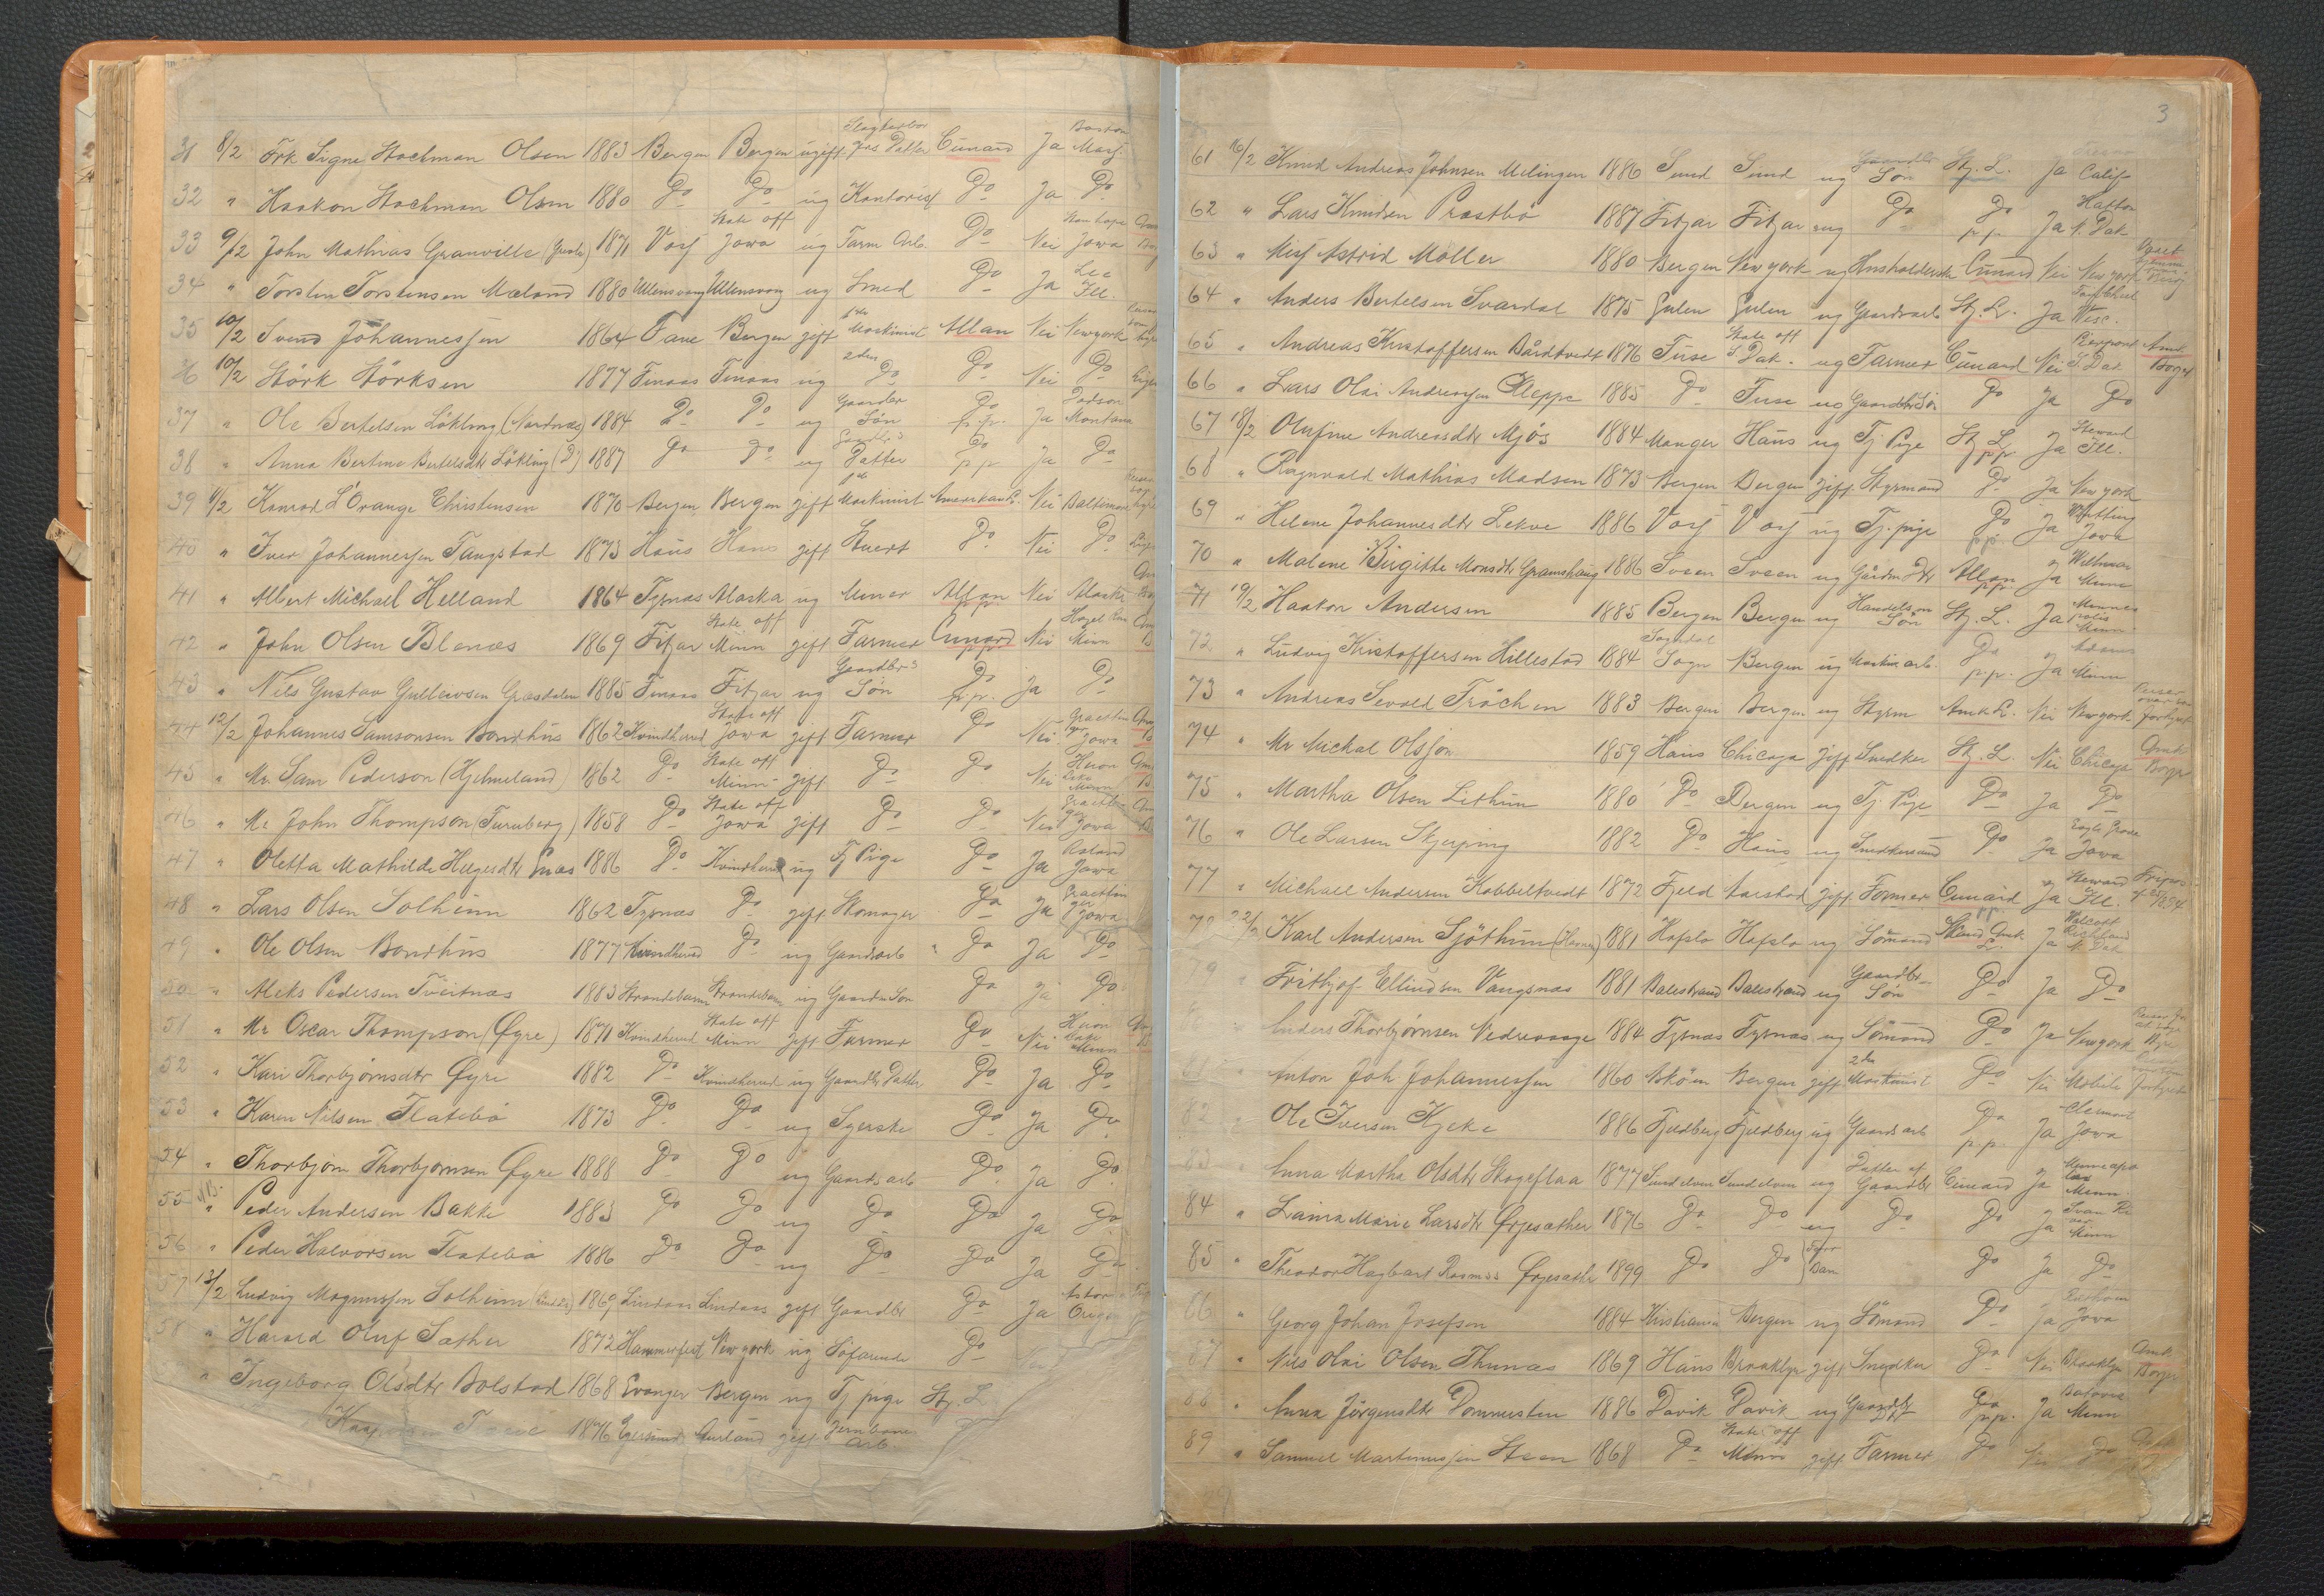 31 8/2 Frk Signe Stockman Olsen 1883 Bergen Bergen ugift Datter Cunard Ja Boston Mass.
32 " Haakon Stockman Olsen 1880 Do Do ug Kontorist Do Ja Do
33 9/2 John Mathias Granville 1871 Voss State off Jowa ug Farm Arb. Do Nei Jowa
34 " Torsten Torstensen Mæland 1880 Ullensvang Ullensvang ug Smed Do Ja Lee Ill.
35 10/2 Svend Johannessen 1864 Fane Bergen gift Maskinist Allan Nei Newyork
36 10/2 Störk Störksen 1877 Finaas Finaas ug 2den Do Do Nei Do
37 " Ole Bertelsen Lökling (Nordnæs) 1884 Do Do ug Gaardbr Søn Do p.p. Ja Dodson Montana
38 " Anna Bertine Bertelsdtr Lökling (Do) 1887 Do Do ug Gaardbrs Datter Do p.p. Ja Do
39 11/2 Konrad L'Orange Christensen 1870 Bergen Bergen gift Maskinist Amerikansk L. Nei Baltimore
40 " Iver Johannessen Tangstad 1873 Haus Haus gift Stuert Do Nei Do
41 " Albert Michael Helland 1864 Tysnæs Alaska ug Miner Allan p.p. Nei Alaska
42 " John Olsen Blænes 1869 Fitjar State off Minn gift Farmer Cunard p.p. Nei Hazel Run Minn
43 " Nils Gustav Gulleivsen Græsdalen 1885 Finaas Fitjar ug Gaardbrs Søn Do p.p. Ja Do
44 12/2 Johannes Samsonsen Bondhus 1862 Kvindherred State off Jowa gift Farmer Do Nei Graettinger Jowa
45 " Mr. Sam Pederson (Hjelmeland) 1862 Do State off Minn gift Do Do Nei Heron Lake Minn
46 " Mr John Thompson (Furuberg) 1858 Do State off Jowa gift Do Do Nei Graettinger Jowa
47 " Oletta Mathilde Helgesdtr Enæs 1886 Do Kvindherred ug Tj Pige Do Ja Roland Jowa
48 " Lars Olsen Solheim 1862 Tysnæs Do gift Skomager Do Ja Graettinger Jowa
49 " Ole Olsen Bondhus 1877 Kvindherred Do ug Gaardsarb Do Ja Do
50 " Aleks Pedersen Tveitnæs 1883 Strandebarm Strandebarm ug Gaardm Søn Do Ja Do
51 " Mr Oscar Thompson (Øyre) 1871 Kvindherred State off Minn gift Farmer Do Nei Heron Lake Minn
52 " Kari Thorbjørnsdtr Øyre 1882 Do Kvindherred ug Gaardbr Datter Do Ja Do
53 " Karen Nilsen Flatebø 1873 Do Do ug Syerske Do Ja Do
54 " Thorbjørn Thorbjørnsen Øyre 1888 Do Do ug Gaardsarb Do Ja Do
55 NB. " Peder Andersen Bakke 1883 Do Do ug Do Do Ja Do
56 " Peder Halvorsen Flatebø 1886 Do Do ug Do Do Ja Do
57 13/2 Ludvig Magnussen Solheim 1869 Lindaas Lindaas gift Gaardbr Do Ja Astoria
58 " Harald Oluf Sæther 1872 Hammerfest Newyork ug Söfarende Do
" Ingeborg Olsdtr Bolstad 1868 Evanger Bergen ug Tj pige Stj. L
1876 Egersund Aurland gift Jernbane arb
3
61 16/2 Knud Andreas Johnsen Melingen 1886 Sund Sund ug Gaardbr Søn Stj. L. Ja Calif
62 " Lars Knudsen Præstbø 1887 Fitjar Fitjar ug Do Do p.p. Ja Hatton N. Dak
63 " Miss Astrid Møller 1880 Bergen Newyork ug Husholderske Cunard Nei Newyork
64 " Anders Bertelsen Svardal 1875 Gulen Gulen ug Gaardsarb Stj. L. Ja Wisc.
65 " Andreas Kristoffersen Bårdtvedt 1876 Fuse State off S. Dak. ug Farmer Cunard Nei Pierpont S. Dak Amk Borger
66 " Lars Olai Andreassen Kleppe 1885 Do Fuse ug Gaardbr Søn Do Ja Do
67 18/2 Olufine Andreasdtr Mjøs 1884 Manger Haus ug Tj. Pige Stj L. p.p. Ja Steward Ill.
68 " Ragnvald Mathias Madsen 1873 Bergen Bergen gift Styrmand Do Ja New york
69 " Helene Johannesdtr Lekve 1886 Voss Voss ug Tj. pige Do p.p. Ja Whitting Jowa
70 " Malene Birgitte Monsdtr Gramshaug 1886 Sveen Sveen ug Gårdm Dtr Allan p.p. Ja Willmar Minn
71 19/2 Haakon Andersen 1885 Bergen Bergen ug Handelsm Søn Stj. L. Ja Minneapolis Minn.
72 " Ludvig Kristoffersen Hillestad 1884 Sogndal Sogn Bergen ug Maskinarb. Do p.p. Ja Adams Minn
73 " Andreas Sevald Trächen 1883 Bergen Bergen ug Styrm Amk L. Nei Newyork
74 " Mr Michal Olsson 1859 Haus Chicago gift Snedker Stj. L. Nei Chicago Amk Borger
75 " Martha Olsen Lethun 1880 Do Bergen ug Tj. Pige Do Ja Do
76 " Ole Larsen Skjerping 1882 Do Haus ug Snedkersvend Do Ja Eagle Grove Jowa
77 " Michael Andersen Kobbeltvedt 1872 Fjeld Aarstad gift Former Cunard Ja Steward Ill.
78 22/2 Karl Andersen Sjøthun 1881 Hafslo Hafslo ug Sömand Skand Amk L. Ja Walcott Richland N. Dak
79 " Fritjof Ellindsen Vangsnæs 1881 Balestrand Balestrand ug Gaardbr Søn Do Ja Do
Anders Thorbjørnsen Nedrevaage 1884 Tysnæs Tysnæs ug Sömand Do Ja Newyork
81 " Anton Joh Johannessen 1860 Askøen Bergen gift 2den Maskinist Do Nei Mobile
82 " Ole Iversen Kjeke 1886 Fjeldberg Fjeldberg ug Gaardsarb Do p.p. Ja Clermont Jowa
83 " Anna Martha Olsdtr Skogeflaa 1877 Sundelven Sundelven ug Datter af Gaardbr Cunard Ja Minneapolis Minn
84 " Laura Marie Larsdtr Ørjesæther 1876 Do Do ug Do Do Ja Minn
85 " Theodor Hagbart Rasmus Ørjesæther 1899 Do Do Barn Do Ja Do
86 " Georg Johan Josefsen 1884 Kristiania Bergen ug Sömand Do Ja Jowa
87 " Nils Olai Olsen Thunæs 1869 Haus Brooklyn gift Snedker Do Nei Brooklyn Amk. Borger
88 " Anna Jörgensdtr Dommersten 1886 Davik Davik ug Gaardbr Dtr Do p.p. Ja Minn
89 " Samuel Martinussen Steen 1868 Do State off Minn gift Farmer Do Nei Do